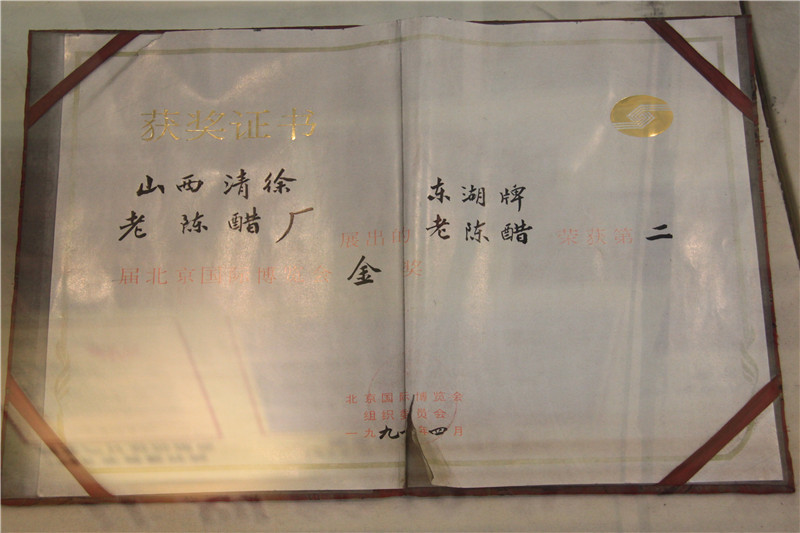 获奖证书
山西清徐 东湖牌
老陈醋厂 展出的 老陈醋 荣获第二
届北京国际博览会 金奖
北京国际博览会
组织委员会
一九九 年四月